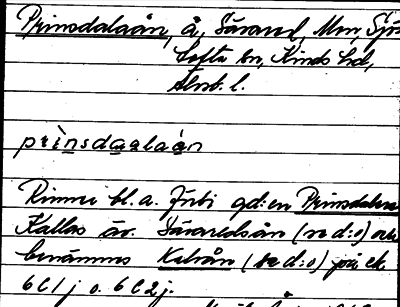 Prinsdalaån, å, Sävared, Mon, Sjö
Tofta sn, Kinds hd,
Älvsb. l.
prìnsdaalaán
Rinner bl.a. förbi gd:en Prinsdalen
Kallas äv. Sävaredsån (se d:o) och
benämnes Kalvån (se d:o) på ek.
6C1j o. 6C2j.